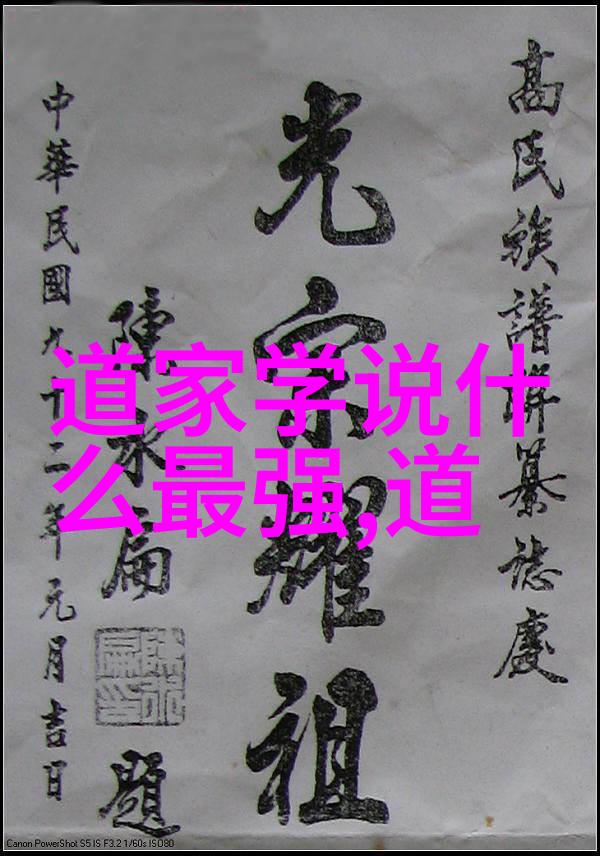 高氏族譜編纂誌慶
光宗耀祖
陳水扁
題
中華民國九十二年元月吉日
陳水扁印
道家学说什
么最强,道
Canon PowerShot S5 IS F3.2 1/60s ISO80